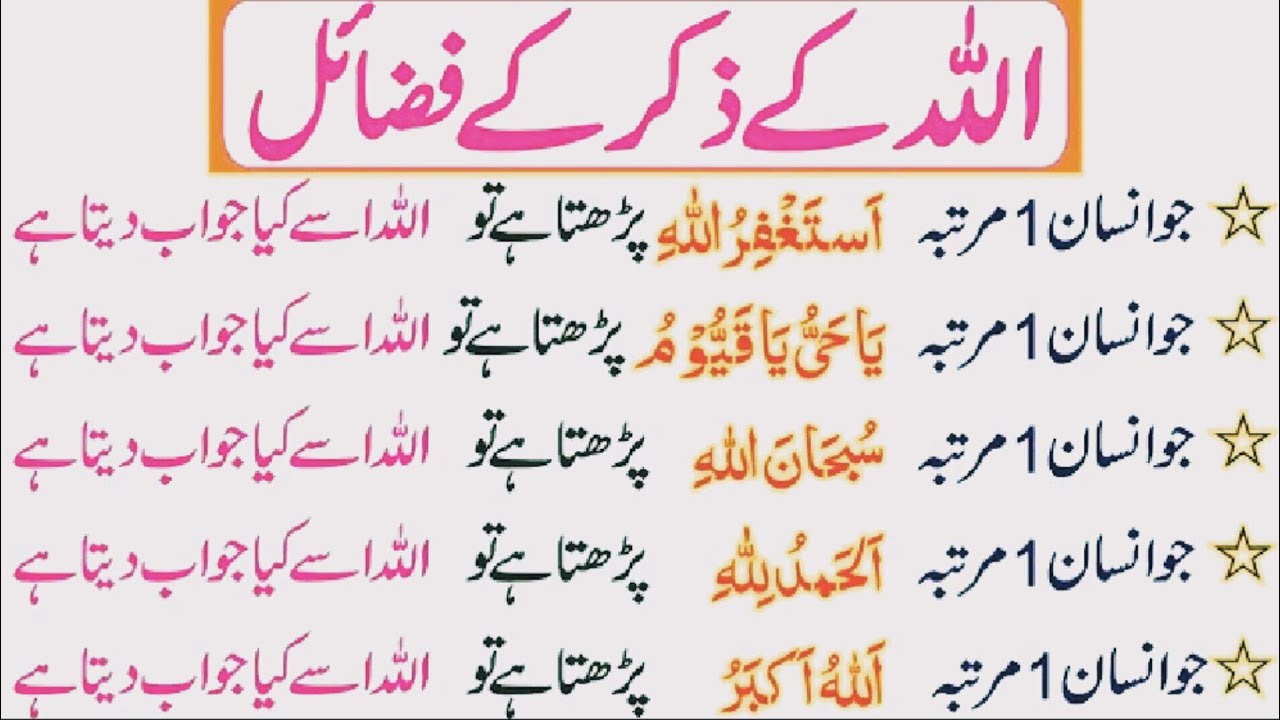 اللہ کے ذکر کے فضائل
☆ جو انسان 1 مرتبہ اَسْتَغْفِرُ اللهِ پڑھتا ہے تو اللہ اسے کیا جواب دیتا ہے
☆ جو انسان 1 مرتبہ يَا حَیُّ يَا قَيُّوْمُ پڑھتا ہے تو اللہ اسے کیا جواب دیتا ہے
☆ جو انسان 1 مرتبہ سُبْحَانَ اللهِ پڑھتا ہے تو اللہ اسے کیا جواب دیتا ہے
☆ جو انسان 1 مرتبہ اَلْحَمدُ لِلّٰهِ پڑھتا ہے تو اللہ اسے کیا جواب دیتا ہے
☆ جو انسان 1 مرتبہ اَللهُ اَكبَرُ پڑھتا ہے تو اللہ اسے کیا جواب دیتا ہے